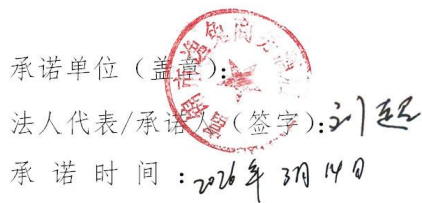 承诺单位（盖章）：
法人代表/承诺人（签字）：刘超
承诺时间：2026年3月14日